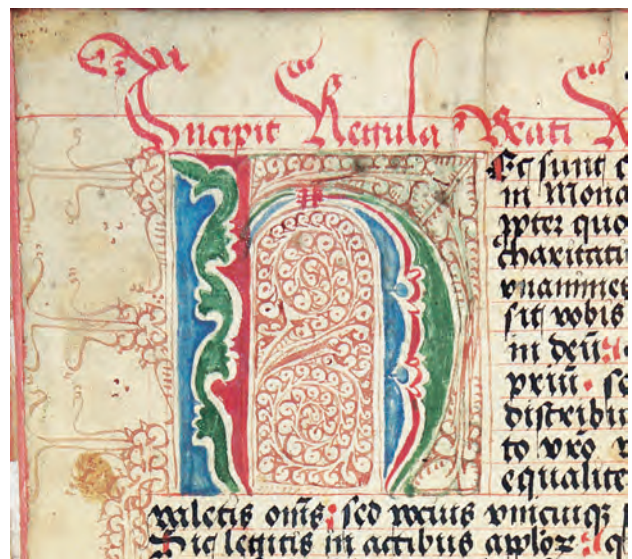 Incipit Regula Beati
Hec sunt
in Mona
ꝓpter quo
charitatı
vnanimes
sit vobis
in deū
priū . se
distribu
to vero
equalite
valetis om̄s : sed pocius vnicuiqꝫ
Sic legitis in actibus aplorꝫ